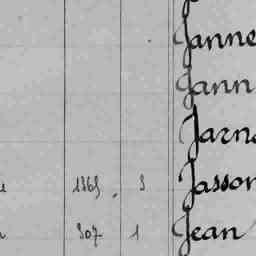 Janne
Jann
Jarn
1365 3 Jasson
307 1 Jean